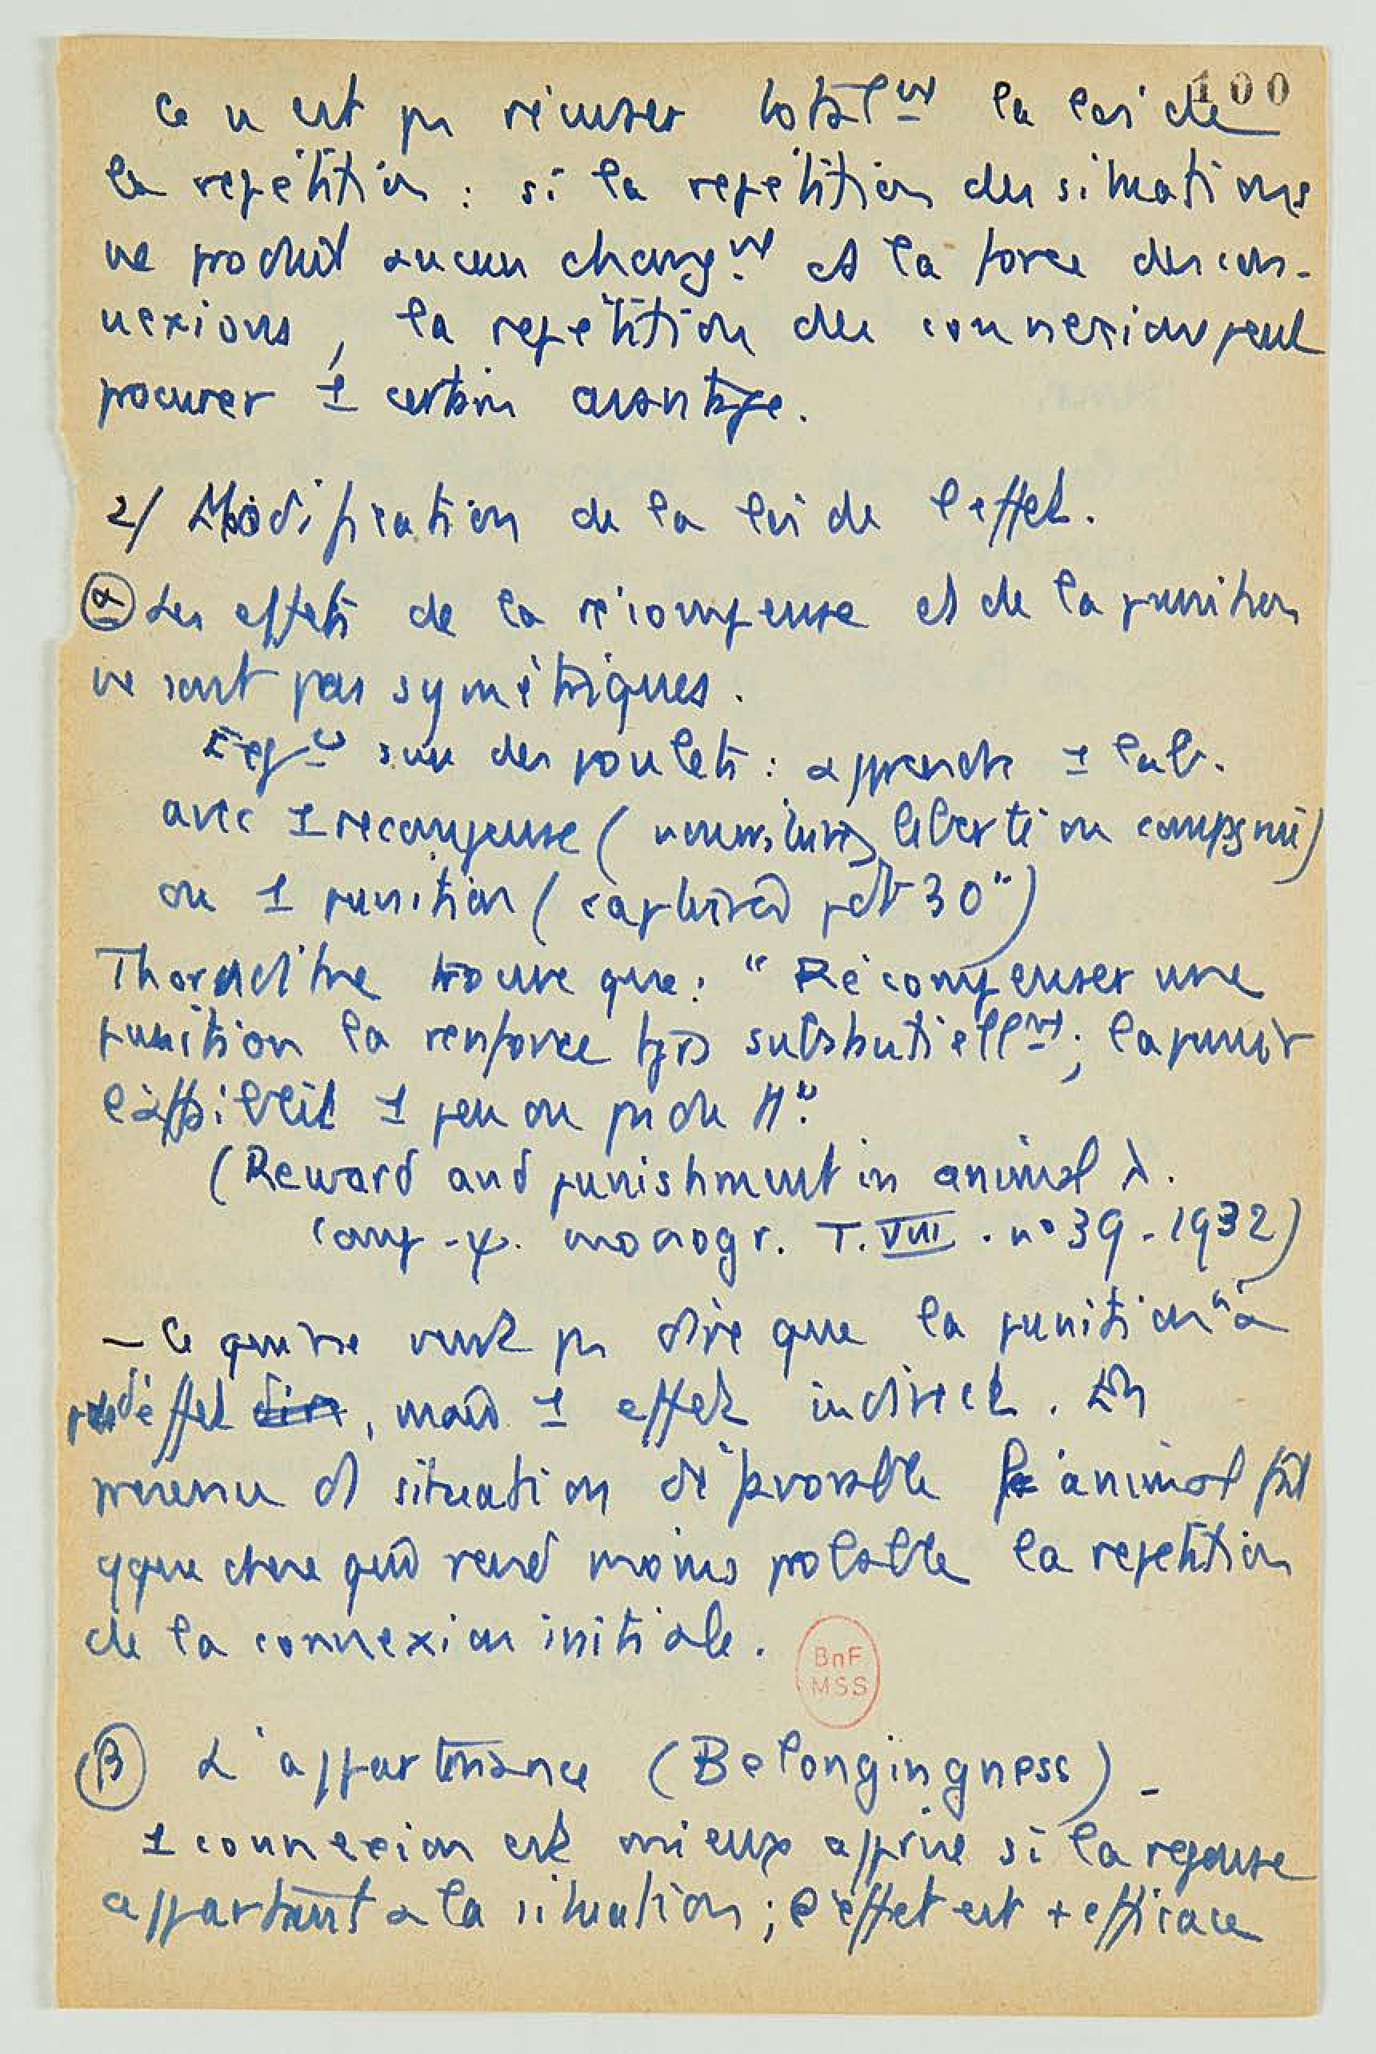 100
Ce n'est pas récuser totalmt la loi de
la repétition : si la repétition des situations
ne produit aucun changmt ds la force des con-
nexions, la repétition des connexions peut
procurer 1 certain avantage.
2/ Modification de la loi de l'effet.
(α) Les effets de la récompense et de la punition
ne sont pas symétriques.
Expce sur des poulets : apprendre 1 lab.
avec 1 recompense (nourriture, liberté ou compagnie)
ou 1 punition (captivité pdt 30")
Thorndike trouve que : "Récompenser une
punition la renforce tjrs substantiellmt ; la punir
l'affaiblit 1 peu ou pas du tt".
(Reward and punishment in animal λ.
Comp. ψ. monogr. T. VIII. n° 39 - 1932)
— Ce qui ne veut pas dire que la punition n'a
pas d'effet dir, mais 1 effet indirect. En
présence d situation défavorable l'animal fait
qque chose qui rend moins probable la repetition
de la connexion initiale.
BnF
MSS
(β) L'appartenance (Belongingness) -
1 connexion est mieux apprise si la reponse
appartient a la situation ; l'effet est + efficace